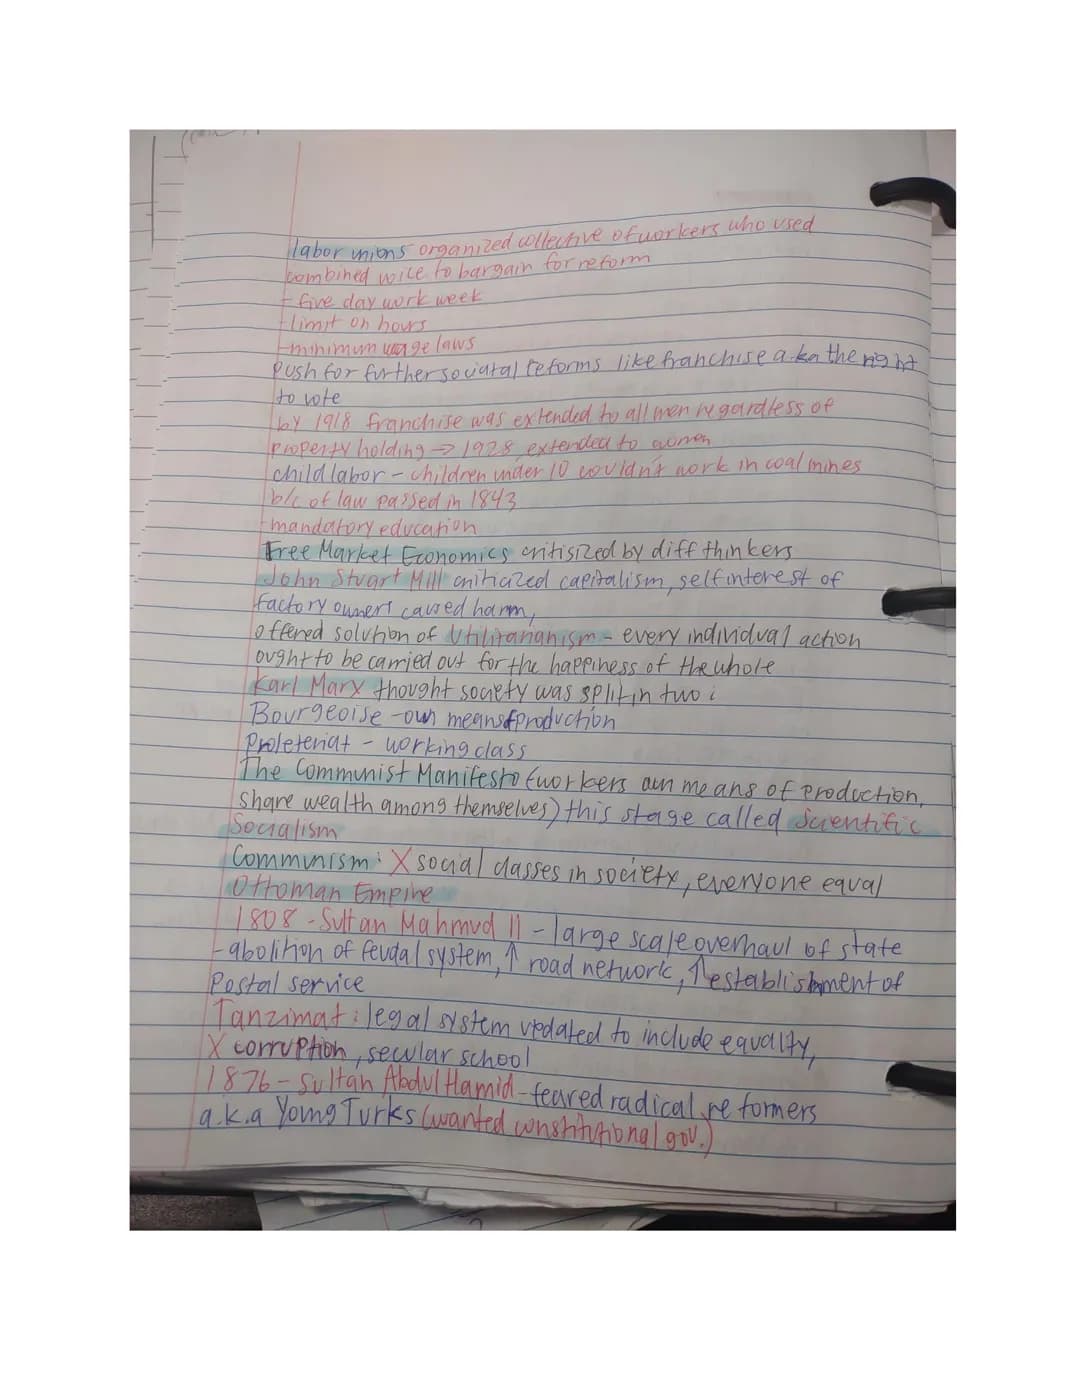 labor unions organized collective of workers who used
combined voice to bargain for reform
- five day work week
- limit on hours
- minimum wage laws
push for further sociatal reforms like franchise a.k.a the right
to vote
by 1918 franchise was extended to all men regardless of
property holding → 1928 extended to women
child labor - children under 10 couldn't work in coal mines
b/c of law passed in 1843
- mandatory education
Free Market Economics critisized by diff thinkers
John Stuart Mill criticized capitalism, self interest of
factory owners caused harm,
offered solution of Utilitarianism - every individual action
ought to be carried out for the happiness of the whole
Karl Marx thought society was split in two :
Bourgeoise - own means of production
Proleteriat - working class
The Communist Manifesto (workers own means of production,
share wealth among themselves) this stage called Scientific
Socialism
Communism: X social classes in society, everyone equal
Ottoman Empire
1808 - Sultan Mahmud II - large scale overhaul of state
- abolition of feudal system, ↑ road network, ↑ establishment of
Postal service
Tanzimat : legal system updated to include equality,
X corruption, secular school
1876 - Sultan Abdul Hamid - feared radical reformers
a.k.a Young Turks (wanted constitutional gov.)